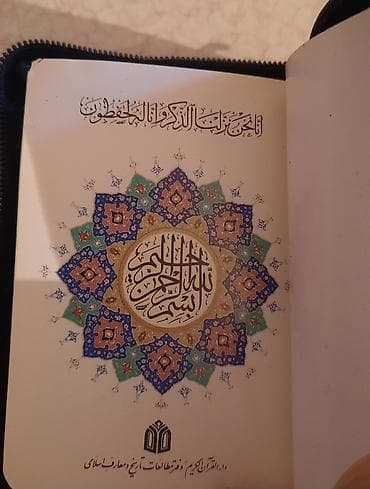 انا نحن نزلنا الذكر وانا له لحفظون
بسم الله الرحمن الرحيم
دارالقرآن الكريم (دفتر مطالعات تاریخ و معارف اسلامی